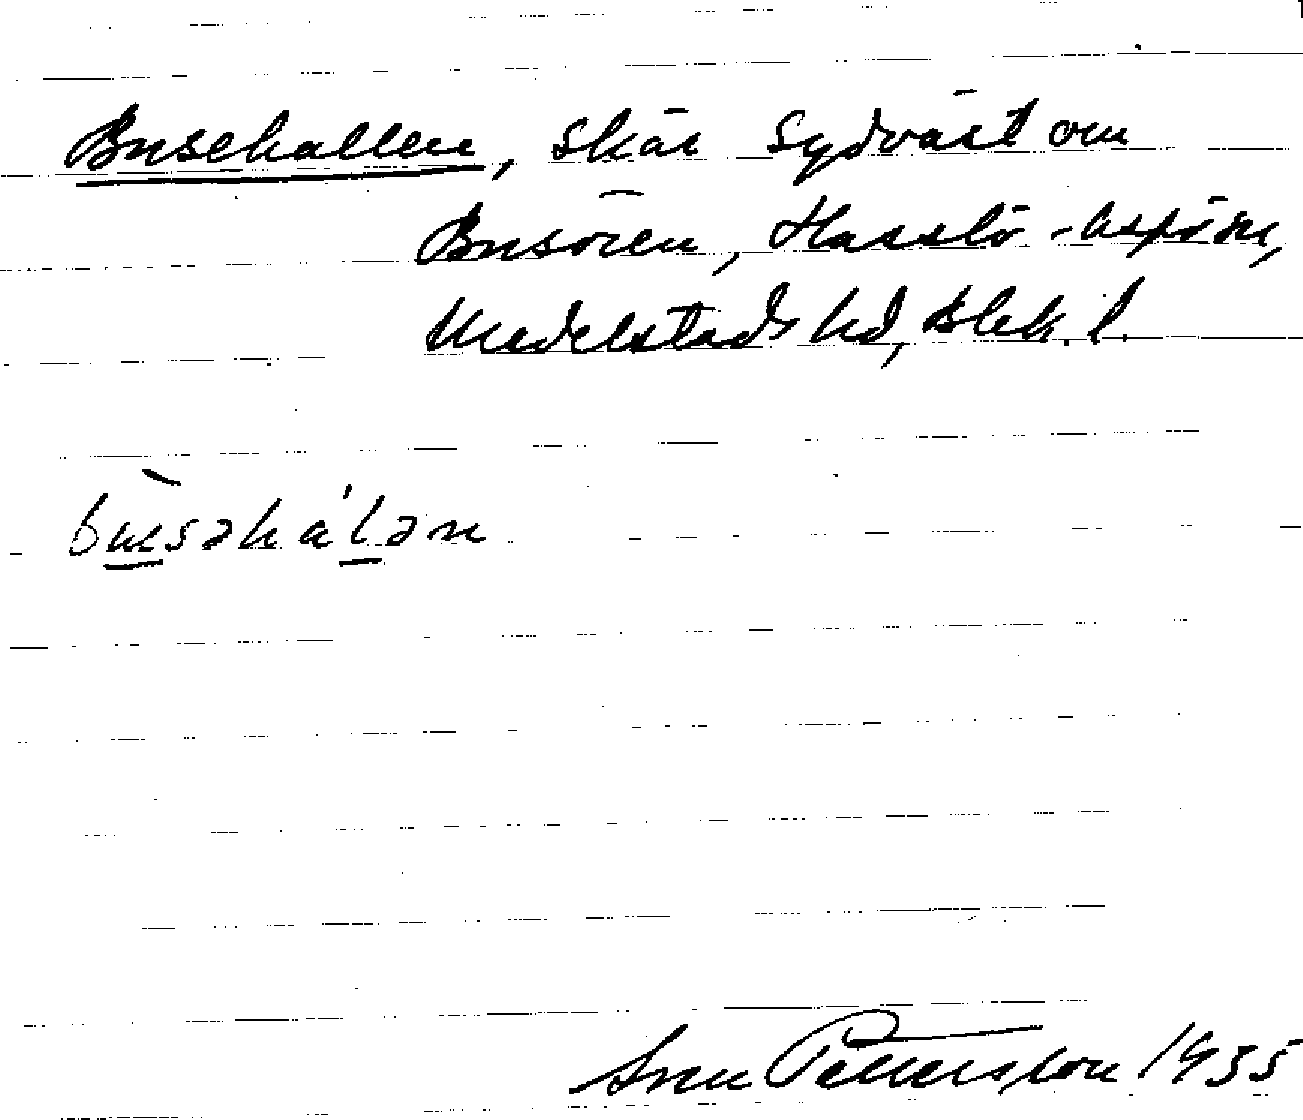 Busehallen, skär sydväst om
Busören, Hasslö-Aspö sn,
Medelstads hd, Blek. l.
bu̲sǝhal̲ǝn
Sven Petterson 1935